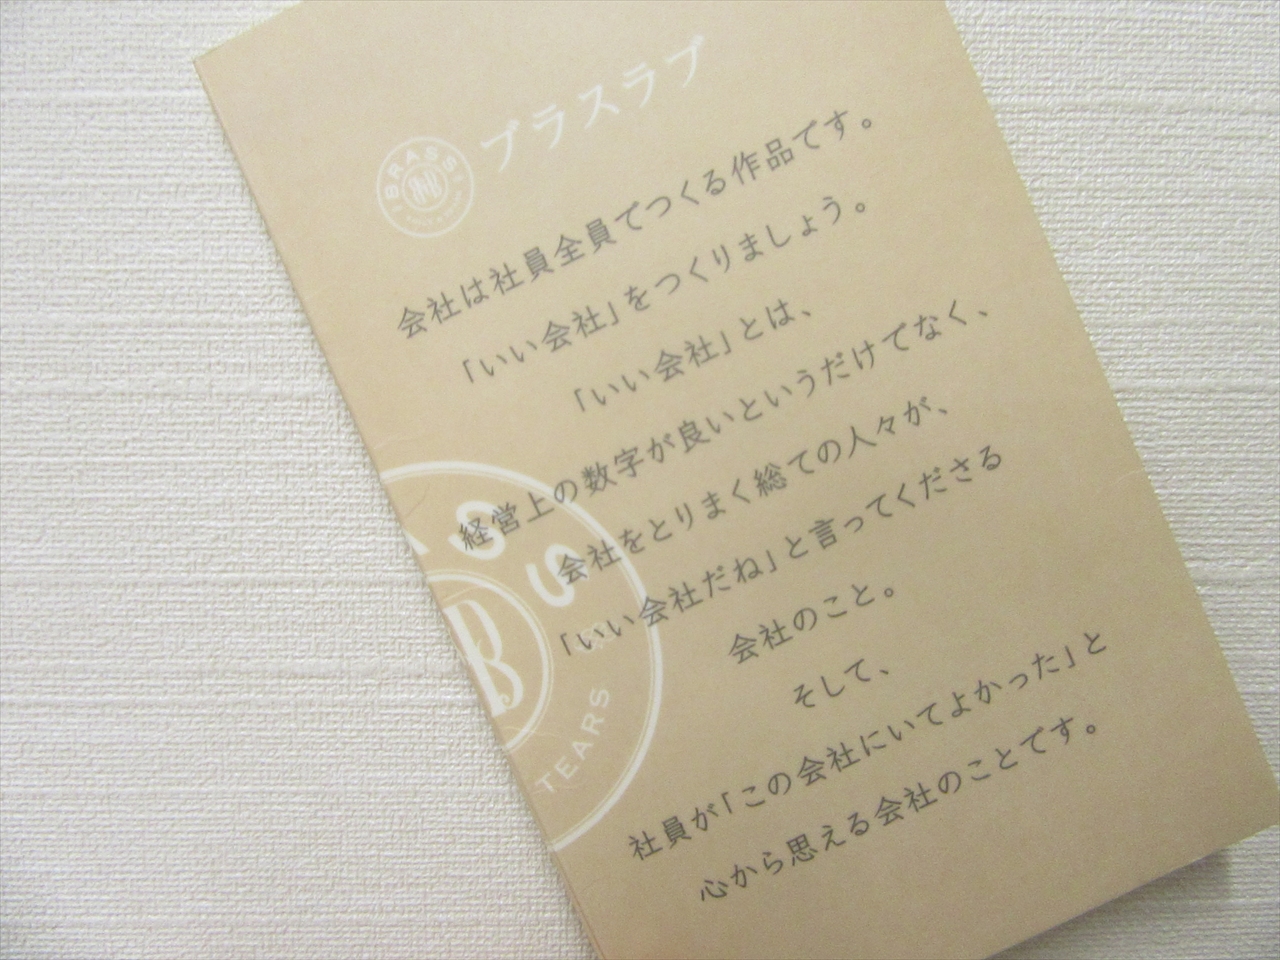 BRASS
ブラスラブ
会社は社員全員でつくる作品です。
「いい会社」をつくりましょう。
「いい会社」とは、
経営上の数字が良いというだけでなく、
会社をとりまく総ての人々が、
「いい会社だね」と言ってくださる
会社のこと。
そして、
社員が「この会社にいてよかった」と
心から思える会社のことです。
SS
B
TEARS